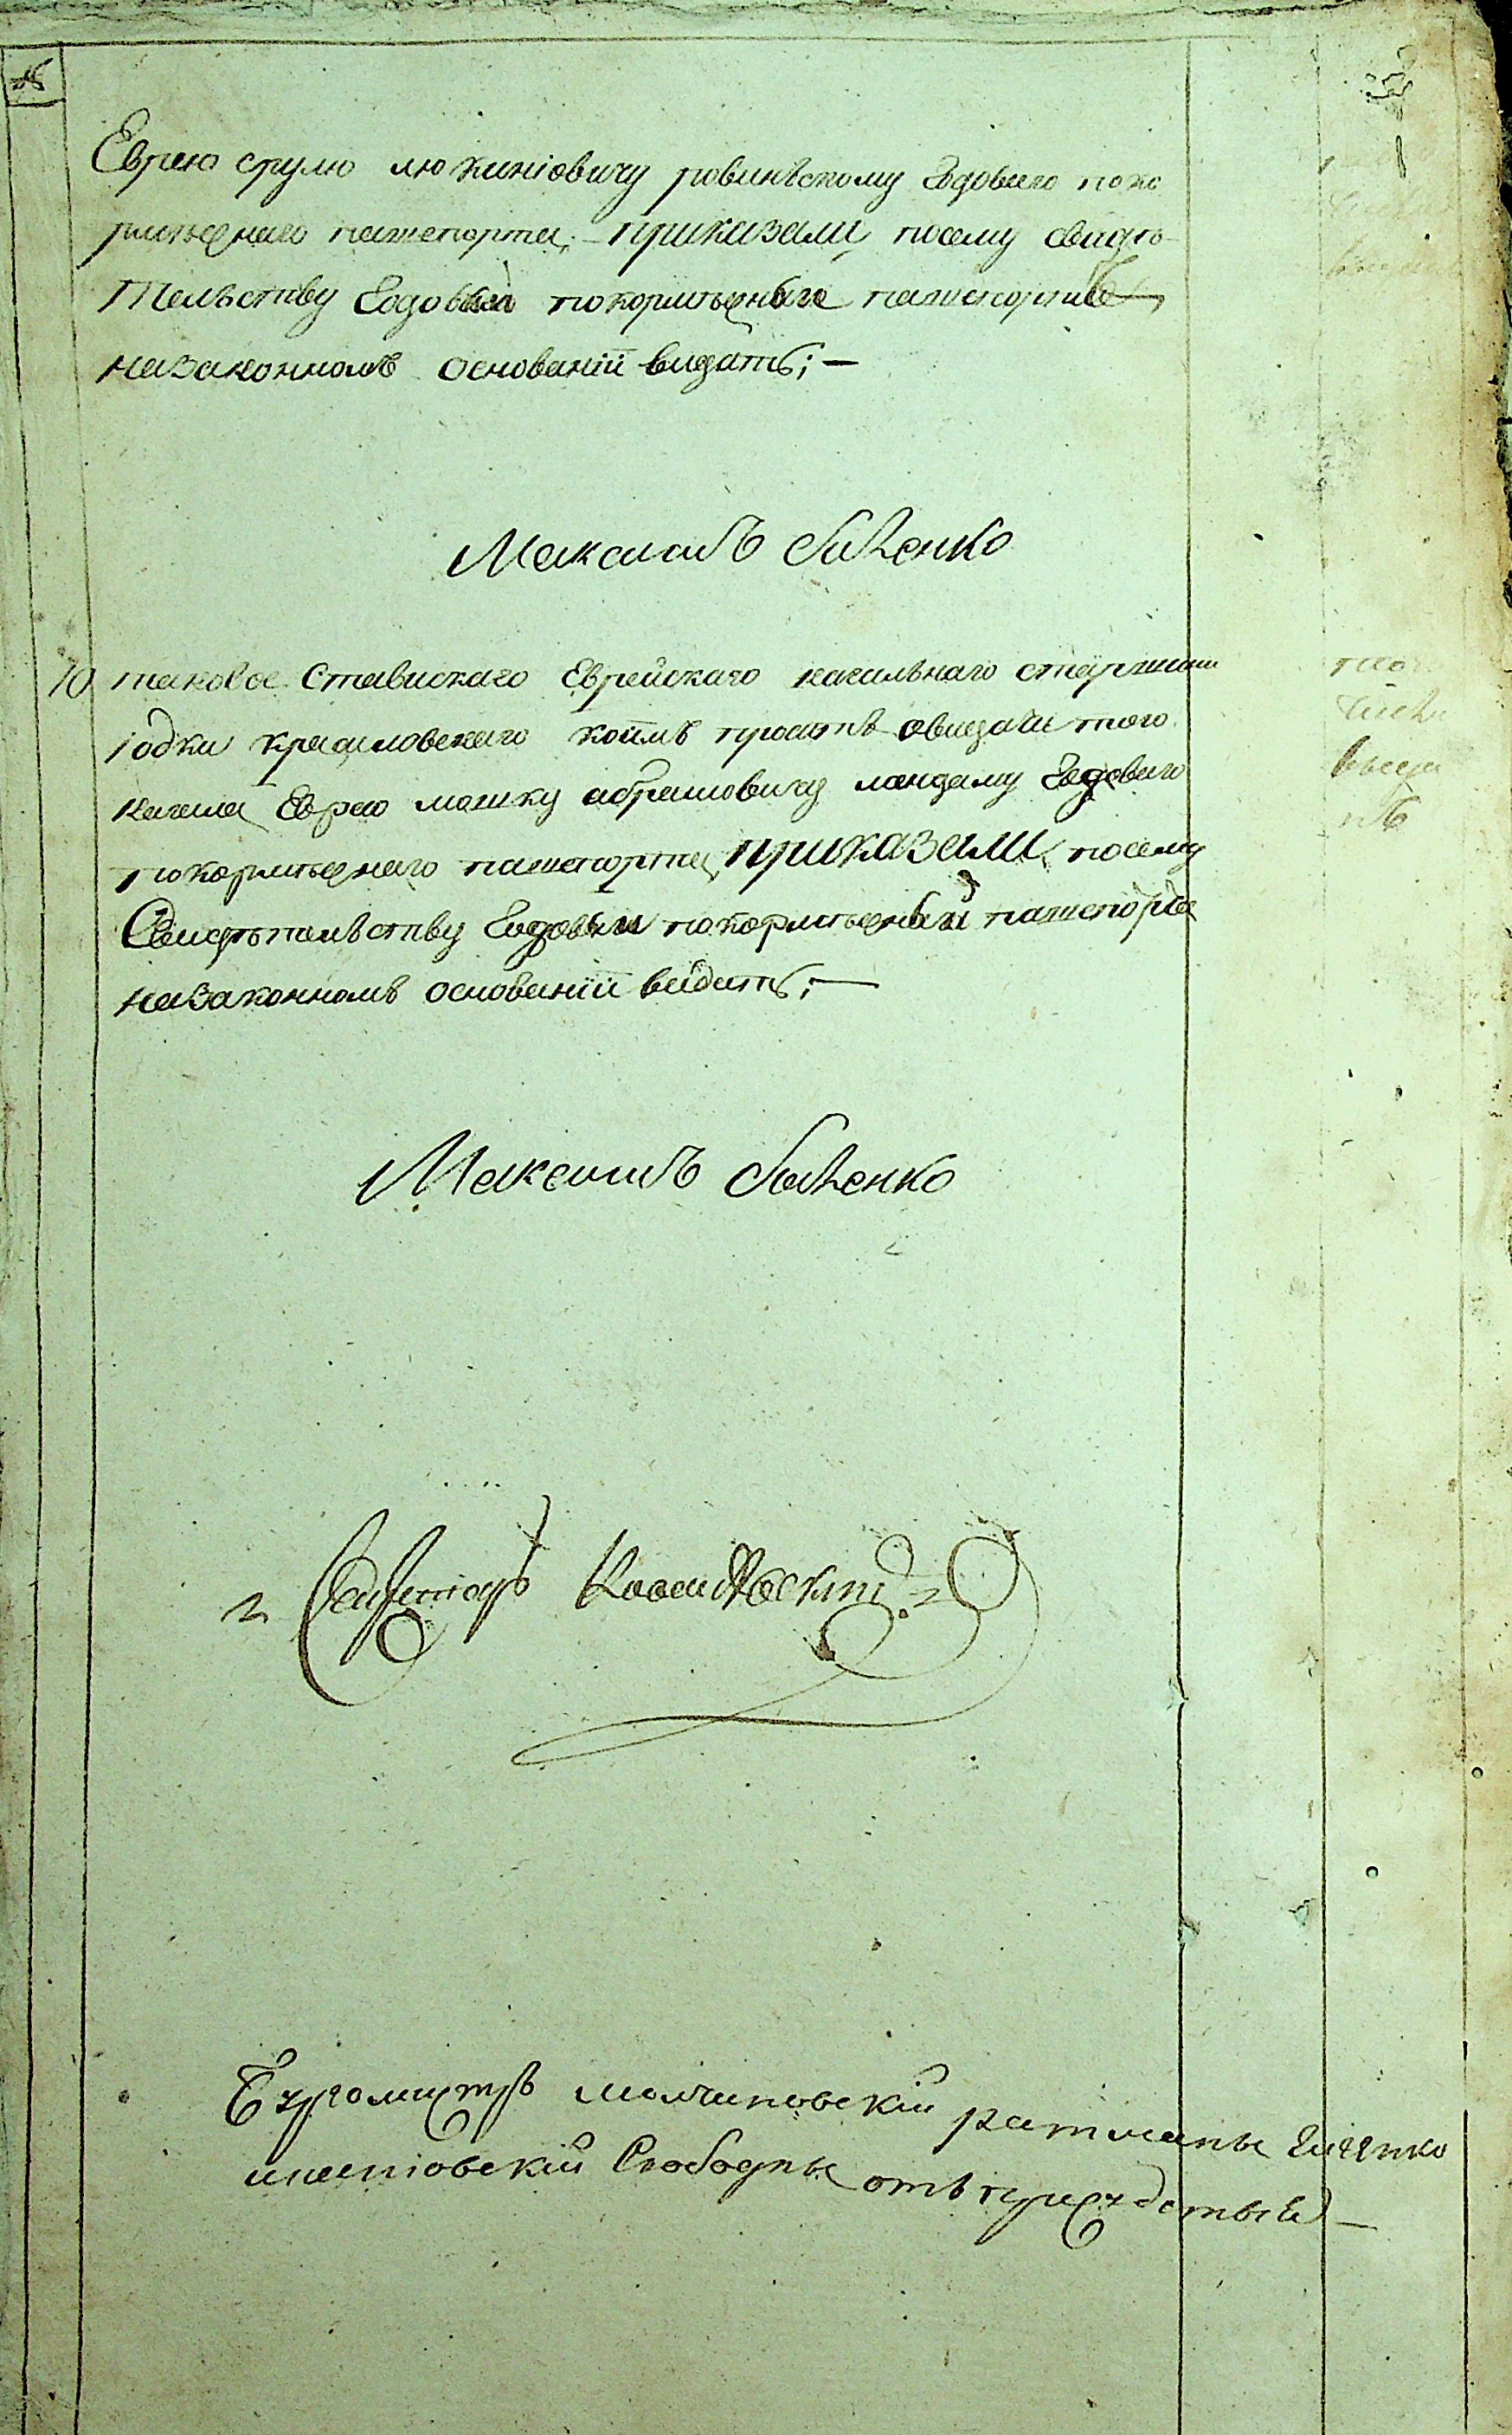 Еврею срулю лю киніовичу ровинѣскому Годоваго поко
рмежнаго пашепорта; – приказали, посему свидѣ
тельству Годовый покормежныи пашепортъ
назаконномъ основаніи видать; —
Максимъ
10 таковое Ставискаго Еврейскаго кагальнаго старшины
іодки красиловскаго коимъ проситъ овидачи того
кагала Еврею мошку абрамовичу ландаму Годоваго
покормежнаго пашепорта, приказали, посему
Свидѣтельству Годовыи покормежный пашепортъ
назаконномъ основаніи видать; —
Максимъ
Бургомистръ молчановскій ратманы
Свободны отъ присудствія —